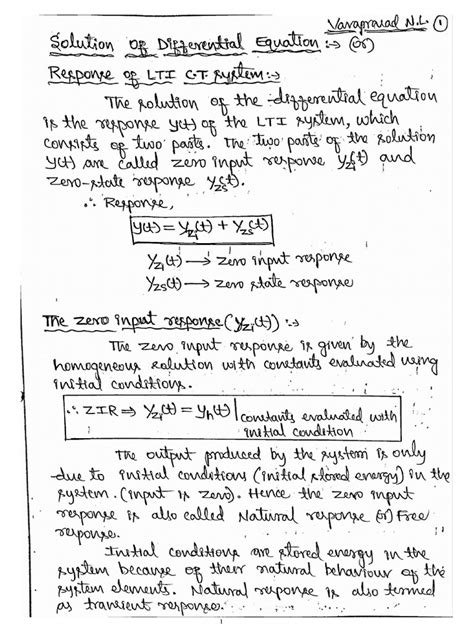 Varaprasad N.L. ①
Solution of Differential Equation :→ (or)
Response of LTI C.T system :→
The solution of the differential equation
is the response y(t) of the LTI system, which
consists of two parts. The two parts of the solution
y(t) are called zero input response y_zi(t) and
zero-state response y_zs(t).
∴ Response,
y(t) = y_zi(t) + y_zs(t)
y_zi(t) → zero input response
y_zs(t) → zero state response
The zero input response (y_zi(t)) :→
The zero input response is given by the
homogeneous solution with constants evaluated using
initial conditions.
∴ ZIR ⇒ y_zi(t) = y_h(t) | constants evaluated with
initial condition
The output produced by the system is only
due to initial conditions (initial stored energy) in the
system. (input is zero). Hence the zero input
response is also called Natural response (or) Free
response.
Initial conditions are stored energy in the
system because of their natural behaviour of the
system elements. Natural response is also termed
as transient response.